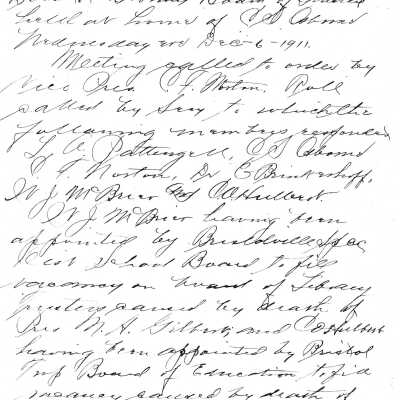 held at home of C S Osborne
Wednesday eve Dec-6-1911.
Meeting called to order by
Vice Pres C F Norton. Roll
called by Secy to which the
following members responded
L A Pattengell, C S Osborne
C F Norton, Dr E Brinkerhoff,
W J McBrier and C O Hulbert.
W J McBrier having been
appointed by Bristolville Spec
School Board to fill
vacancy on board of Library
trustees caused by death of
Pres M A Gilbert, and C O Hulbert
having been appointed by Bristol
Twp Board of Education to fill
vacancy caused by death of